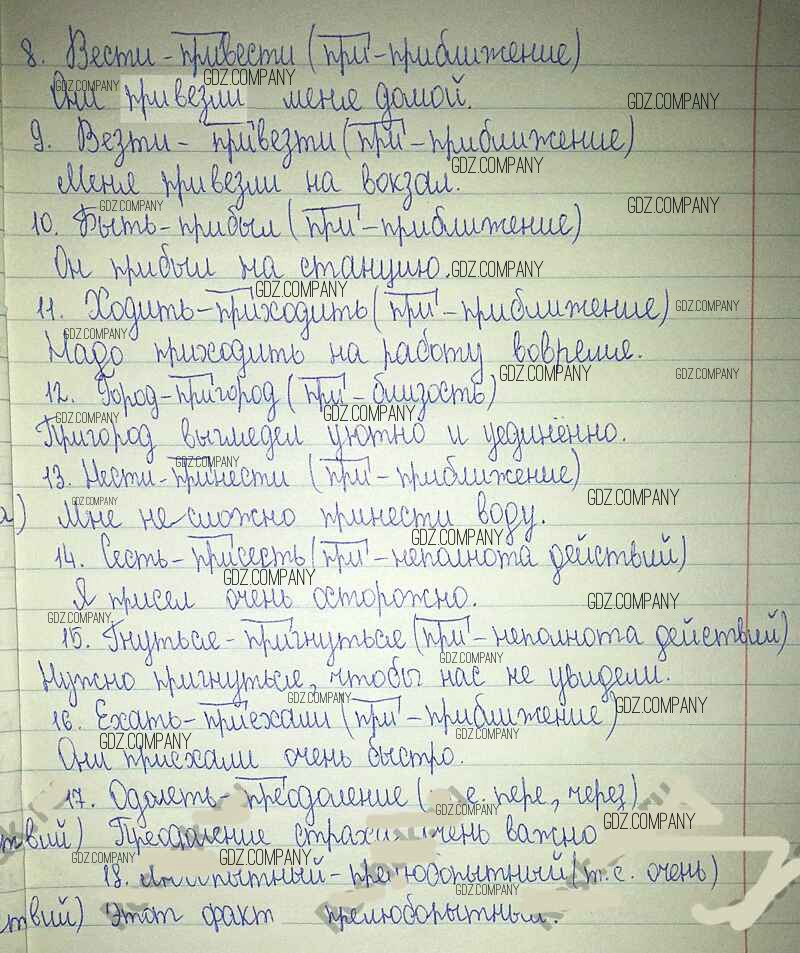 8. Вести - привести (при - приближение)
Они привезли меня домой.
9. Везти - привезти (при - приближение)
Меня привезли на вокзал.
10. Быть - прибыл (при - приближение)
Он прибыл на станцию.
11. Ходить - приходить (при - приближение)
Надо приходить на работу вовремя.
12. Город - пригород (при - близость)
Пригород выглядел уютно и уединённо.
13. Нести - принести (при - приближение)
а) Мне не сложно принести воду.
14. Сесть - присесть (при - неполнота действий)
Я присел очень осторожно.
15. Гнуться - пригнуться (при - неполнота действий)
Нужно пригнуться, чтобы нас не увидели.
16. Ехать - приехали (при - приближение)
Они приехали очень быстро.
17. Одолеть - преодоление ( е. пере, через)
твий) Преодоление страха очень важно
18. - прелюбопытный (т.е. очень)
ствий) Этот факт прелюбопытный.
GDZ.COMPANY